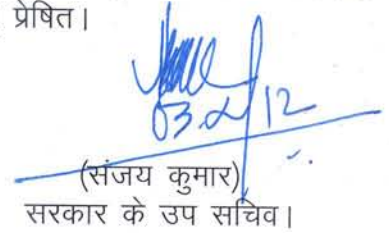 प्रेषित।
(संजय कुमार)
सरकार के उप सचिव।